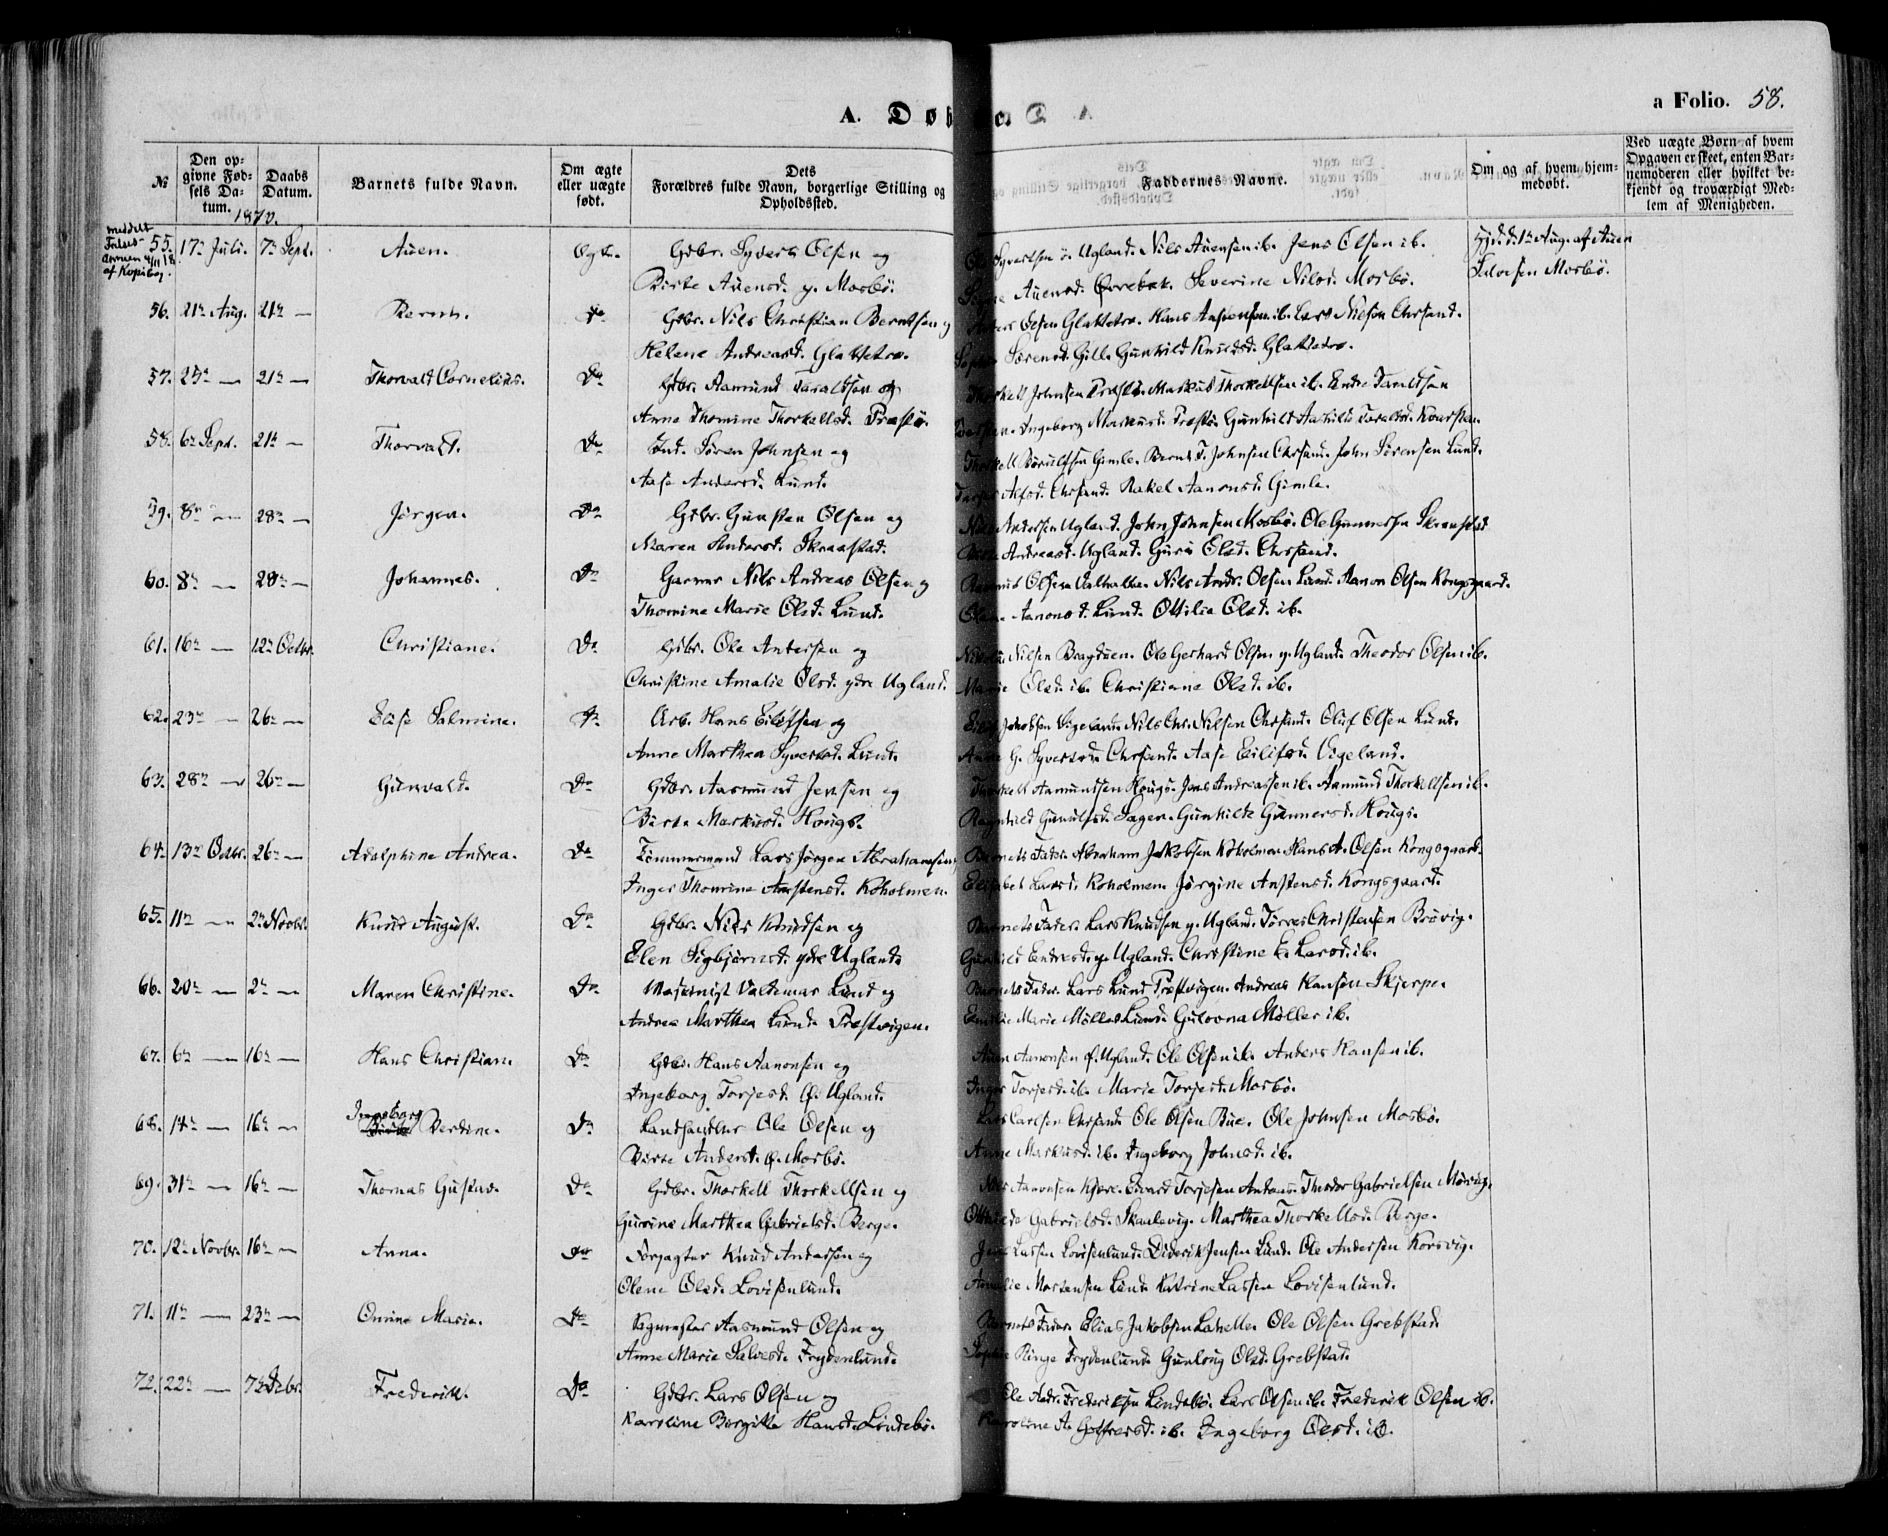 A. Døb
a Folio. 58.
№
Den opgivne Fødsels Datum.
Daabs Datum.
Barnets fulde Navn.
Om ægte eller uægte født.
Dets Forældres fulde Navn, borgerlige Stilling og Opholdssted.
Faddernes Navne.
Om og af hvem hjemmedøbt.
Ved uægte Børn af hvem Opgaven er skeet, enten Barnemoderen eller hvilket bekjendt og troværdigt Medlem af Menigheden.
1870.
meddelt
af Kopibog.
55. 17de Juli. 7de Sept. Auen. Ægte. Gdbr. Syvert Olsen og
Birte Auensd. y. Mosbø.
Syvertsen ø. Ugland. Nils Auensen ib. Jens Olsen ib.
Auensd. Øvrebøk. Severine Nilsd. Mosbø.
Hjd. d. 1te Aug. af Auen
Salvesen Mosbø.
56. 21de Aug. 21de — Bernt. Do Gdbr. Nils Christian Berntsen og
Helene Andreasd. Glattetre.
Olsen Glattetre. Hans ib. Lars Nilsen Chrsand.
Sørensd. Gill. Gunhild Knudsd. Glattetre.
57. — 21de — Thorvald Cornelius. Do Gdbr. Aamund Taraldsen og
Anne Thomine Thorkellsd. Præstø.
Thorkell Johnsen Præstø. Markus Thorkellsen ib. Endre Taraldsen
Ingeborg Markusd. Præstø. Gunhild Aashild Taraldsd. Kvarsten.
58. 6te Sept. 21de — Thorvald. Do Ind. Søren Johnsen og
Aase Andersd. Lund.
Gimle. Bernt T. Johnsen Chrsand. John Sørensen Lund.
Alfsd. Chrsand. Rakel Aanonsd. Gimle.
59. 8de — 28de — Jørgen. Do Gdbr. Gunsten Olsen og
Maren Andersd. Skraastad.
Andersen Ugland. John Johnsen Mosbø. Ole Gunnersen Skraastad
Andreasd. Ugland. Guro Olsd. Chrsand.
60. 8de — 28de — Johannes. Do Garver Nils Andreas Olsen og
Thomine Marie Olsd. Lund.
Rasmus Olsen Valhalla. Nils Andr. Olsen Lund. Aanon Olsen Kongsgaard.
Aanonsd. Lund. Ottilia Olsd. ib.
61. 16de — 12te Octbr. Christiane. Do Gdbr. Ole Andersen og
Christine Amalie Olsd. ydre Ugland.
Nikolai Nilsen Bragduen. Ole Gerhard Olsen y. Ugland. Theodor Olsen ib.
Marie Olsd. ib. Christiane Olsd. ib.
62. 23de — 26de — Elise Salmine. Do Arb. Hans Eilefsen og
Anne Marthea Syvertsd. Lund.
Jakobsen Vigeland. Nils Chr. Nilsen Chrsand. Oluf Olsen Lund.
Anne G. Syvertsd. Chrsand. Aase Eilifsd. Vigeland.
63. 28de — 26de — Gunvald. Do Gdbr. Aasmund Jensen og
Birte Markusd. Hougs.
Thorkell Aamundsen Hougs. Jens Andreassen ib. Aamund Thorkellsen ib.
Ragnhild Gunulfsd. Sagen. Gunhilde Gunnersd. Hougs.
64. 13de Octbr. 26de — Adolphine Andrea. Do Tømmermand Lars Jørgen Abrahamsen og
Inger Thomine Anstensd. Koholmen.
Barnets Fader. Abraham Jakobsen Koholmen. Hans A. Olsen Kongsgaard.
Elisabet Larsd. Koholmen. Jørgine Anstensd. Kongsgaard.
65. 11te — 2de Novbr. Knud August. Do Gdbr. Nils Knudsen og
Elen Sigbjørnsd. ydre Ugland.
Barnets Fader. Lars Knudsen y. Ugland. Torres Christensen Brøvig.
Gunhild Endresd. y. Ugland. Christine E. Larsd. ib.
66. 20de — 2de — Maren Christine. Do Maskinist Valdemar Lund og
Andrea Marthea Lund. Præstvigen.
Barnets Fader. Lars Lund Præstvigen. Andreas Hansen Skjerpe.
Emilie Marie Møller Lund. Gulovna Møller ib.
67. 6te — 16de — Hans Christian. Do Gdbr. Hans Aanonsen og
Ingeborg Torjesd. Ø. Ugland.
Auen Aanonsen ø. Ugland. Ole Olsen ib. Anders Hansen ib.
Inger Torjesd. ib. Marie Torjesd. Mosbø.
68. 14de — 16de — Ingeborg Berdine. Do Landhandler Ole Olsen og
Birte Andersd. ø. Mosbø.
Lars Larsen Chrsand. Ole Olsen Bue. Ole Johnsen Mosbø.
Anne Markusd. ib. Ingeborg Johnsd. ib.
69. 31te — 16de — Thomas Gustav. Do Gdbr. Thorkell Thorkellsen og
Gurine Marthea Gabrielsd. Berge.
Aanonsen Kjære. Edvard Torjesen Andaas. Theodor Gabrielsen Mørvig.
Gabrielsd. Skaulevig. Marthea Thorkellsd. Berge.
70. 12te Novbr. 16de — Anna. Do Forpagter Knud Andersen og
Olene Olsd. Lovisenlund.
Jens Lassen Lovisenlund. Diderik Jensen Lund. Ole Andersen Korsvig.
Amalie Mortensen Lund. Katrine Lassen Lovisenlund.
71. 11te — 23de — Onine Marie. Do Vogmester Aasmund Olsen og
Anne Marie Salvesd. Frydenlund.
Barnets Fader. Elias Jakobsen Lahelle. Ole Olsen Grebstad.
Sophie Ringe Frydenlund. Gunlaug Olsd. Grebstad.
72. 22de — 7de Debr. Frederik. Do Gdbr. Lars Olsen og
Karoline Bergitte Hansd. Lindebø.
Ole Andr. Frederiksen Lindebø. Lars Olsen ib. Frederik Olsen ib.
Karoline A. Gotfredsd. ib. Ingeborg Olsd. ib.